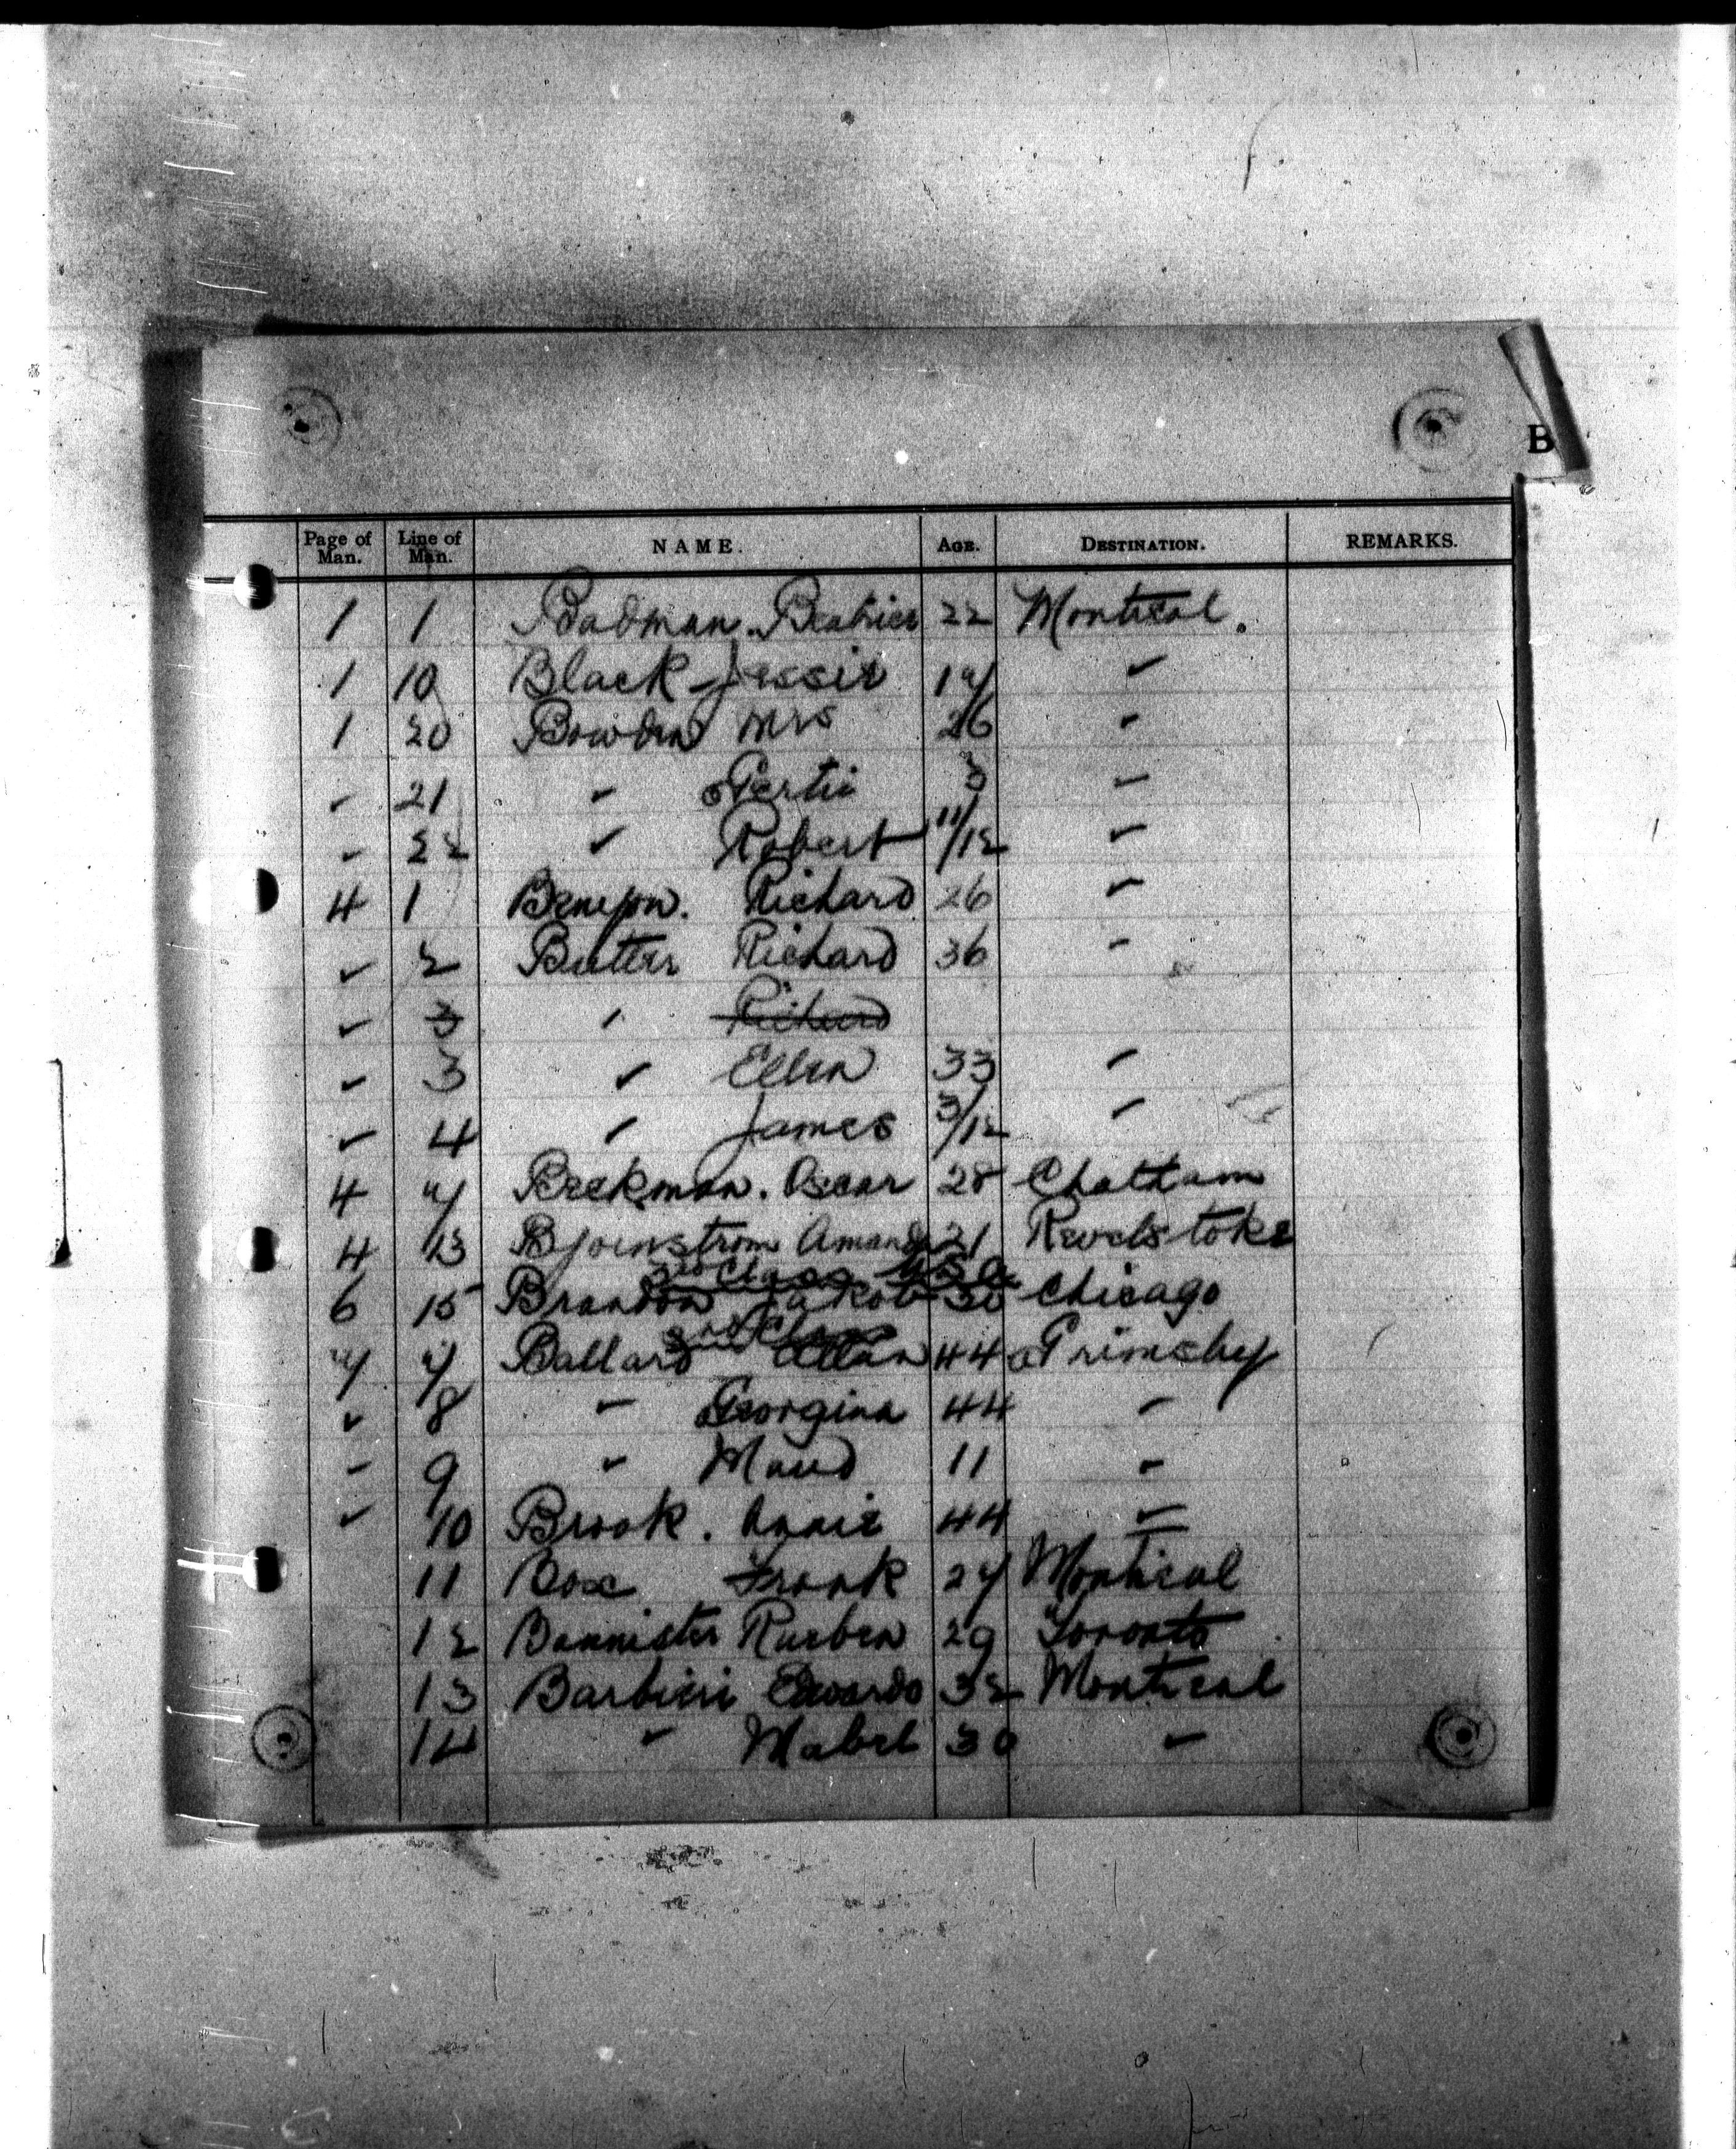 B
Page of Man. Line of Man. NAME. AGE. DESTINATION. REMARKS.
1 1 Badman. Beatrice 22 Montreal.
1 10 Black Jessie 19 "
1 20 Bowden Mrs 26 "
" 21 " Gertie 3 "
" 22 " Robert 11/12 "
4 1 Benyon. Richard 26 "
" 2 Butter Richard 36 "
" 3 " Richard
" 3 " Ellen 33 "
" 4 " James 3/12 "
4 7 Beckman. Oscar 28 Chatham
4 13 Bjornstrom Amanda 21 Revelstoke
3rd Class U.S.A.
6 15 Brandon Jakob 30 Chicago
2nd Class
7 7 Ballard Allan 44 Grimsby
" 8 " Georgina 44 "
" 9 " Maud 11 "
" 10 Brook. Annie 44 "
11 Box Frank 27 Montreal
12 Bannister Rueben 29 Toronto
13 Barbieri Edwardo 32 Montreal
14 " Mabel 30 "